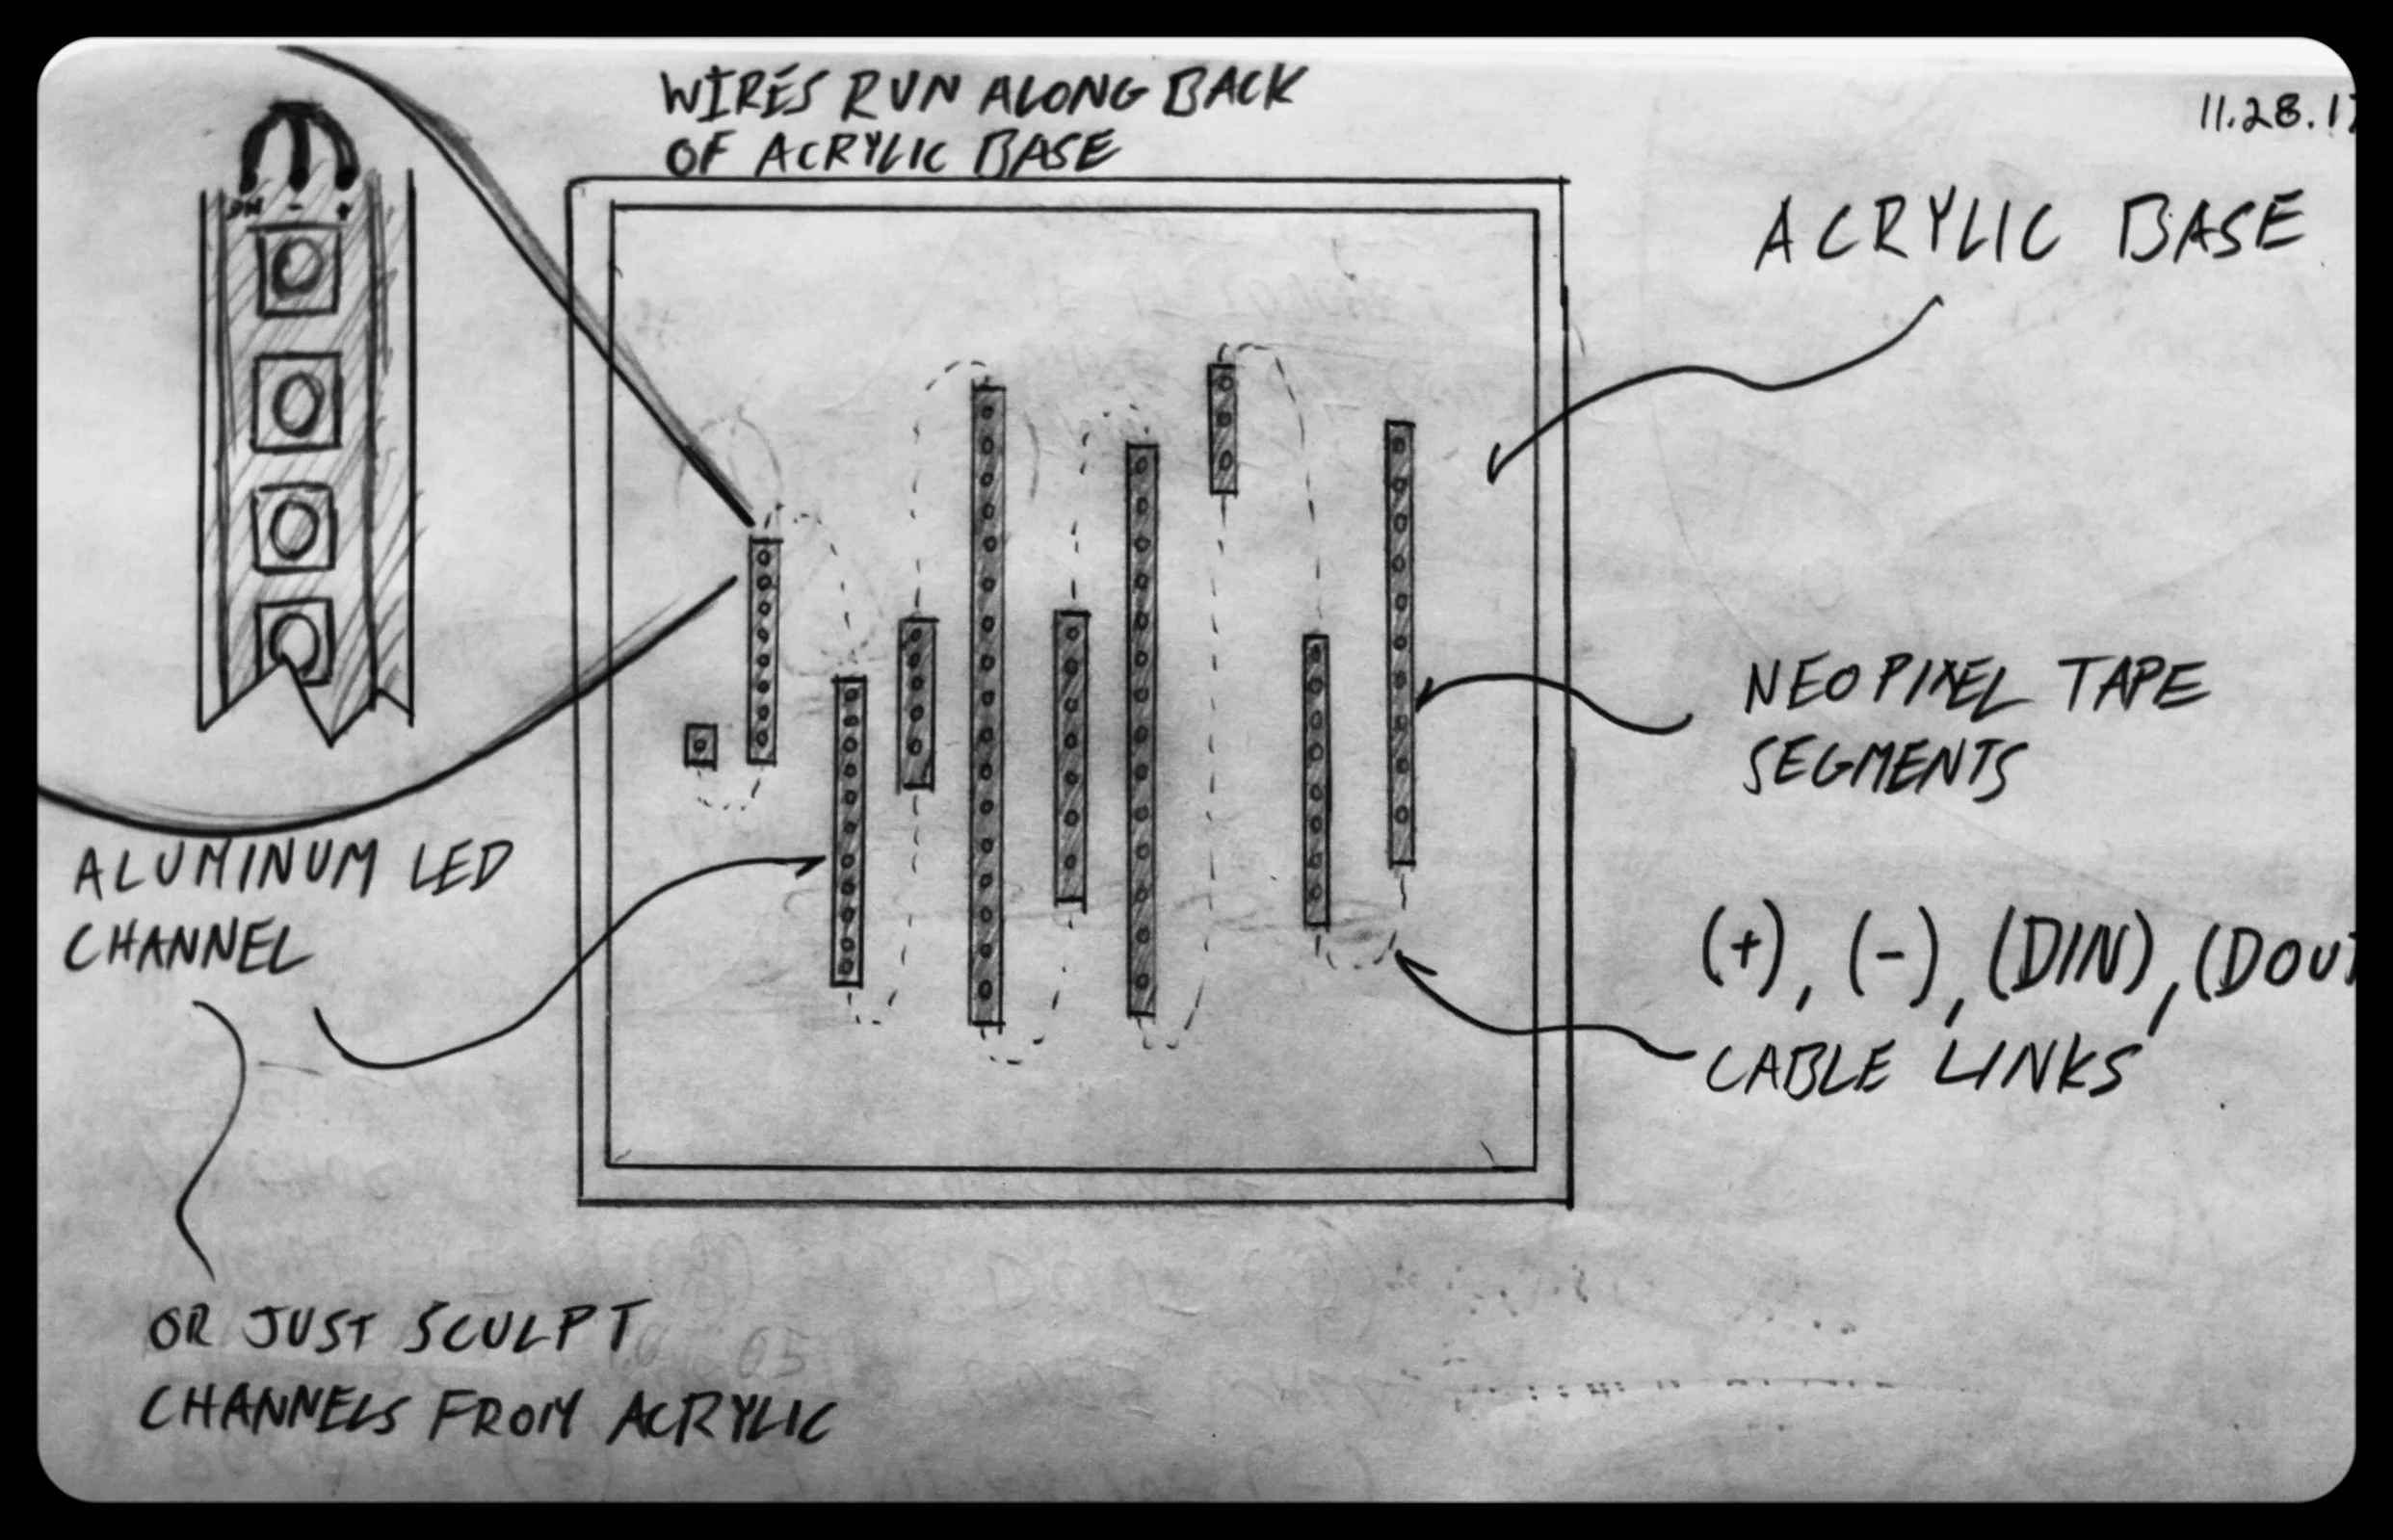 WIRES RUN ALONG BACK
OF ACRYLIC BASE
11.28.17
ACRYLIC BASE
DIN - +
NEOPIXEL TAPE
SEGMENTS
ALUMINUM LED
CHANNEL
(+), (-), (DIN), (DOUT
CABLE LINKS
OR JUST SCULPT
CHANNELS FROM ACRYLIC